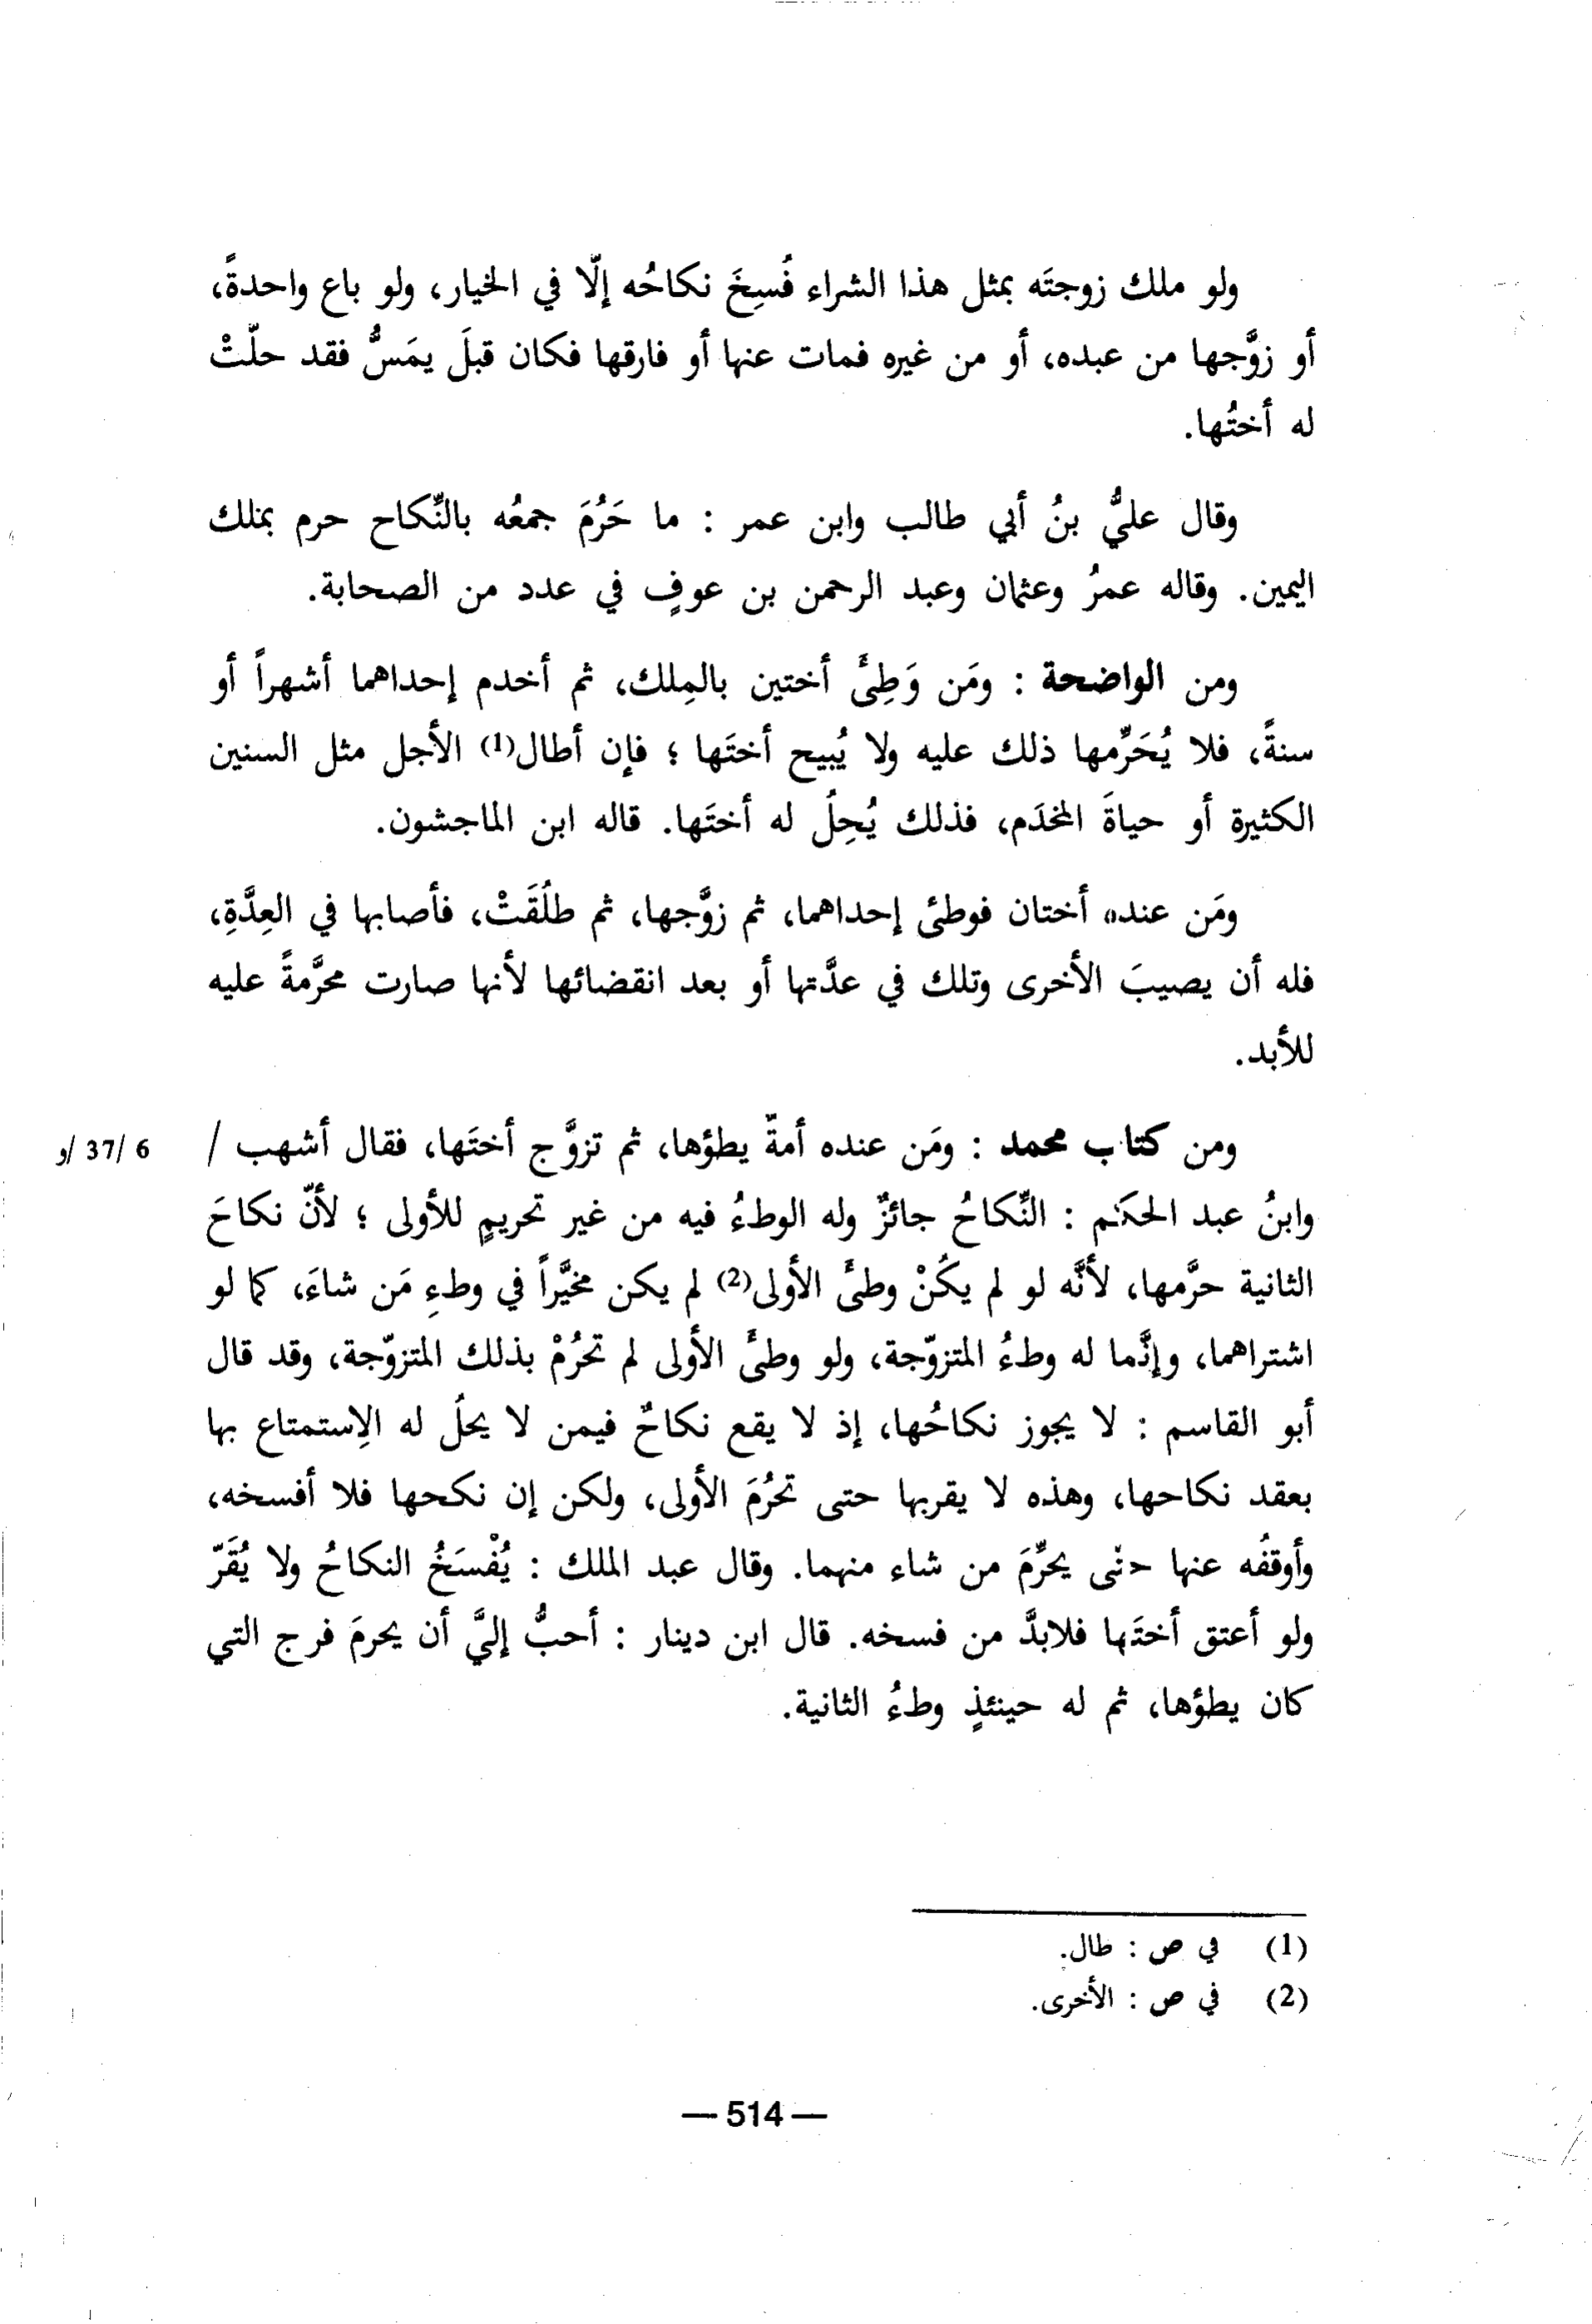 ولو ملك زوجتَه بمثل هذا الشراء فُسِخَ نكاحُه إلّا في الخيار، ولو باع واحدةً،
أو زوَّجها من عبده، أو من غيره فمات عنها أو فارقها فكان قبلَ يمَسُّ فقد حلّتْ
له أختُها.
وقال عليُّ بنُ أبي طالب وابن عمر : ما حَرُمَ جمعُه بالنِّكاح حرم بملك
اليمين. وقاله عمرُ وعثمان وعبد الرحمن بن عوفٍ في عدد من الصحابة.
ومن الواضحة : ومَن وَطِئَ أختين بالمِلك، ثم أخدم إحداهما أشهراً أو
سنةً، فلا يُحَرِّمها ذلك عليه ولا يُبيح أختَها ؛ فإن أطال(1) الأجل مثل السنين
الكثيرة أو حياةَ المخدَم، فذلك يُحِلُ له أختَها. قاله ابن الماجشون.
ومَن عنده أختان فوطئ إحداهما، ثم زوَّجها، ثم طلُقَتْ، فأصابها في العِدَّةِ،
فله أن يصيبَ الأخرى وتلك في عدَّتها أو بعد انقضائها لأنها صارت محرَّمةً عليه
للأبد.
ومن كتاب محمد : ومَن عنده أمةٌ يطؤها، ثم تزوَّج أختَها، فقال أشهب / 6 /37 /و
وابنُ عبد الحكم : النِّكاحُ جائزٌ وله الوطءُ فيه من غير تحريمٍ للأولى ؛ لأنّ نكاحَ
الثانية حرَّمها، لأنَّه لو لم يكُنْ وطئَ الأولى(2) لم يكن مخيَّراً في وطءِ مَن شاءَ، كما لو
اشتراهما، وإنَّما له وطءُ المتزوّجة، ولو وطئَ الأولى لم تحُرُمْ بذلك المتزوّجة، وقد قال
أبو القاسم : لا يجوز نكاحُها، إذ لا يقع نكاحٌ فيمن لا يحلُ له الإستمتاع بها
بعقد نكاحها، وهذه لا يقربها حتى تحُرُمَ الأولى، ولكن إن نكحها فلا أفسخه،
وأوقفُه عنها حتى يحرِّمَ من شاء منهما. وقال عبد الملك : يُفْسَخُ النكاحُ ولا يُقَرّ
ولو أعتق أختَها فلابدَّ من فسخه. قال ابن دينار : أحبُّ إليَّ أن يحرمَ فرج التي
كان يطؤها، ثم له حينئذٍ وطءُ الثانية.
(1) في ص : طال.
(2) في ص : الأخرى.
— 514 —